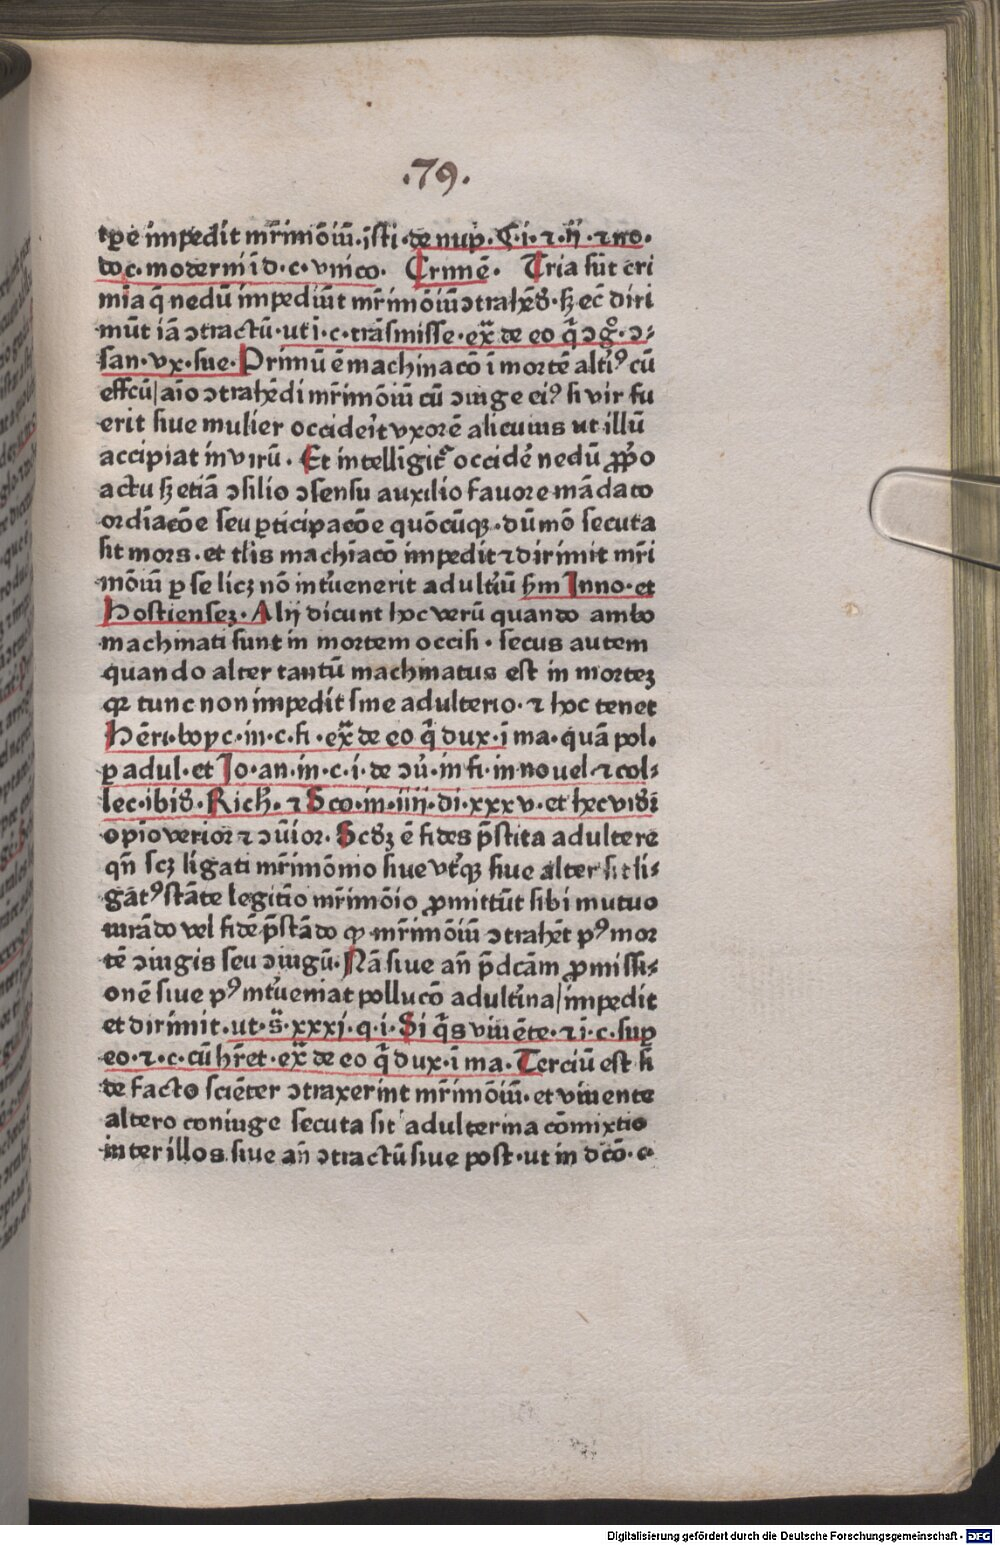 .79.
tꝑe impedit mr̄imōiū.isti.de nup̄.C.i.⁊.ij.⁊no.
do c.moderni ī d.c.vnico. Crimē. Tria sūt cri
mīa q̄ nedū impediūt mr̄imōiū ↄtrahēs.sꝫ ec̄ diri
mūt iā ↄtractū.ut ī.c.trāsmisse.ex̄ de eo
san.vx.sue.Primū ē machinacō ī mortē altīꝰ cū
effcū/aīo ↄtrahēdi mr̄imōiū cū ↄiuge eiꝰ si vir fu
erit siue mulier occideīt vxorē alicuius ut illū
accipiat in virū. Et intelligit᷑ occidē nedū ꝓpo
actu sꝫ etiā ↄsilio ↄsensu auxilio fauore mādato
ordīacōe seu ꝑticipacōe quōcūqꝫ.dūmō secuta
sit mors.et tlis machīacō impedit ⁊dirimit mr̄i
mōiū ꝑ se licꝫ nō inťuenerit adulťiū sm̄ Inno.et
Hostienseꝫ.Alij dicunt hoc verū quando ambo
machinati sunt in mortem occisi. secus autem
quando alter tantū machinatus est in morteꝫ
qꝛ tunc non impedit sine adulterio.⁊ hoc tenet
Hēri.boyc.in.c.fi.ex̄ de eo q̄ dux.ī ma.quā pol.
ꝑ adul.et Jo.an.in.c.i.de ↄū.in fi.in nouel.⁊ col-
lec.ibiđ.Rich̄.⁊ Sco.in.iiij.di.xxxv.et hec vidēt
opīo verior ⁊ ↄūior. Scđꝫ ē fides p̄stita adultere
qn̄ scꝫ ligati mr̄imōnio siue vťqꝫ siue alter sit li-
gāťꝰ stāte legitīo mr̄imōio ꝓmittūt sibi mutuo
iurādo vel fidē p̄stādo ꝙ mr̄imōiū ↄtrahēt pꝰ mor
tē ↄiugis seu ↄiugū.Nā siue an̄ p̄dcām ꝓmissi-
onē siue pꝰ inťueniat pollucō adulťina/impedit
et dirimit.ut.s̄.xxxj.q.i.Si q̄s viuēte.⁊ ī.c.suꝑ
eo.⁊.c.cū hr̄et.ex̄ de eo q̄ dux.ī ma.Terciū est si
de facto sciēter ↄtraxerint mr̄imōiū.et viuente
altero coniuge secuta sit adulterina cōmixtio
inter illos siue an̄ ↄtractū siue post.ut in dcō.c.
Digitalisierung gefördert durch die Deutsche Forschungsgemeinschaft - DFG